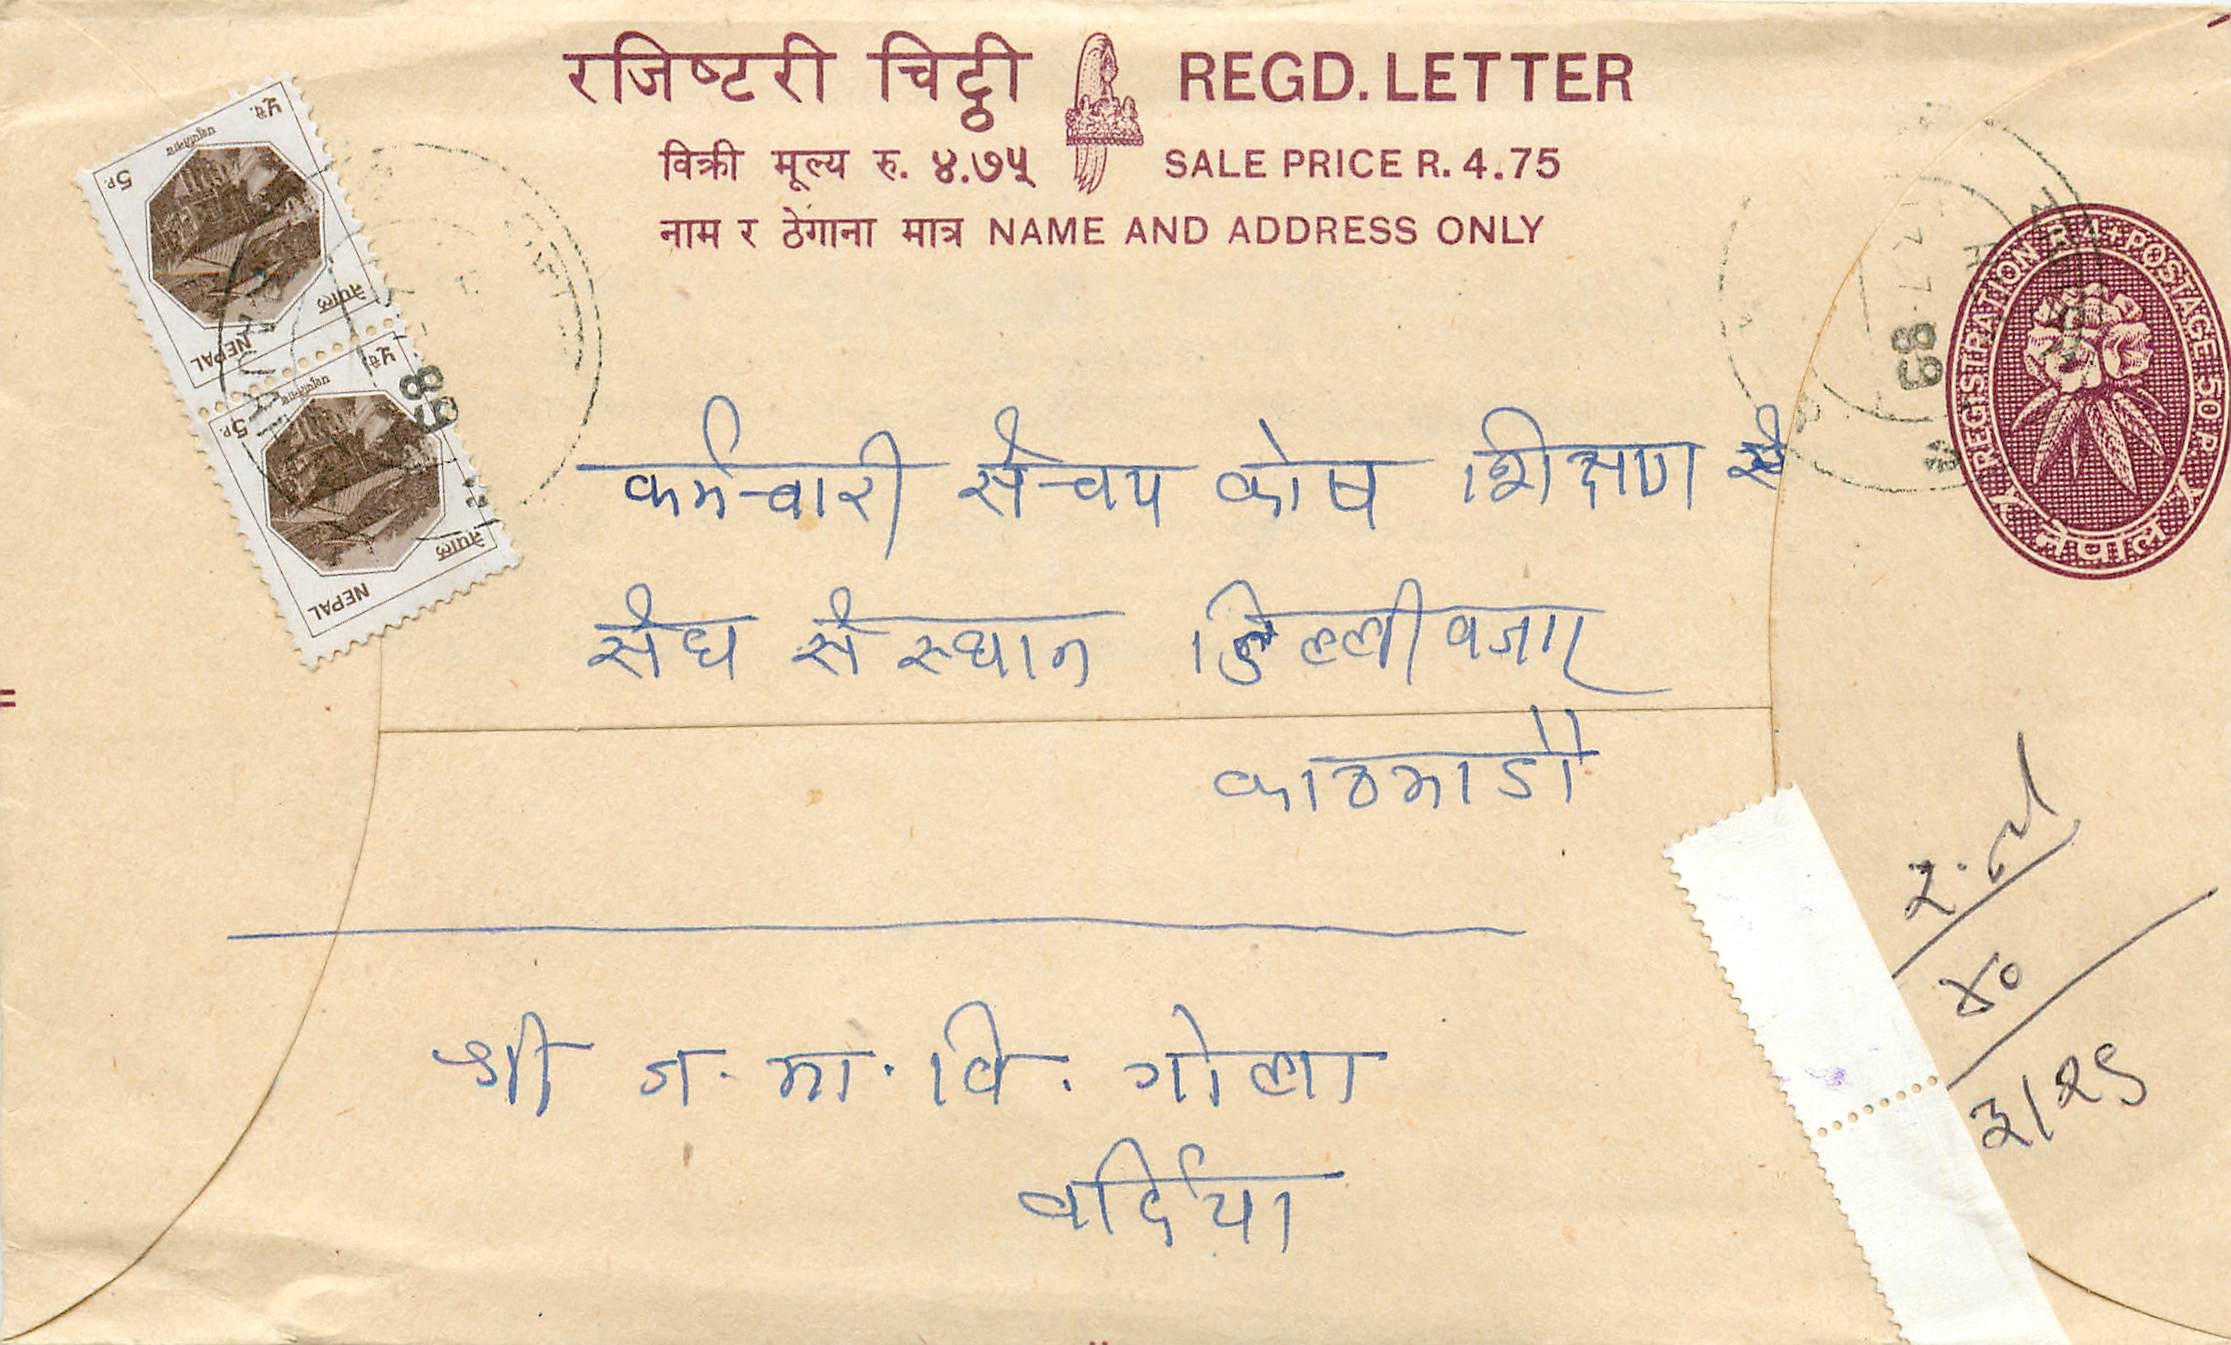 रजिष्टरी चिट्ठी REGD. LETTER
विक्री मूल्य रु. ४.७५ SALE PRICE R. 4.75
नाम र ठेगाना मात्र NAME AND ADDRESS ONLY
५ पै.
5 P.
नेपाल
NEPAL
५ पै.
5 P.
नेपाल
NEPAL
89
89
REGISTRATION R. 4 + POSTAGE 50 P.
नेपाल
कर्मचारी संचय कोष शिक्षण सं
संघ संस्थान डिल्लीवजार
काठमाडौं
श्री ज. मा. वि. गोला
वर्दिया
४०
३/२९